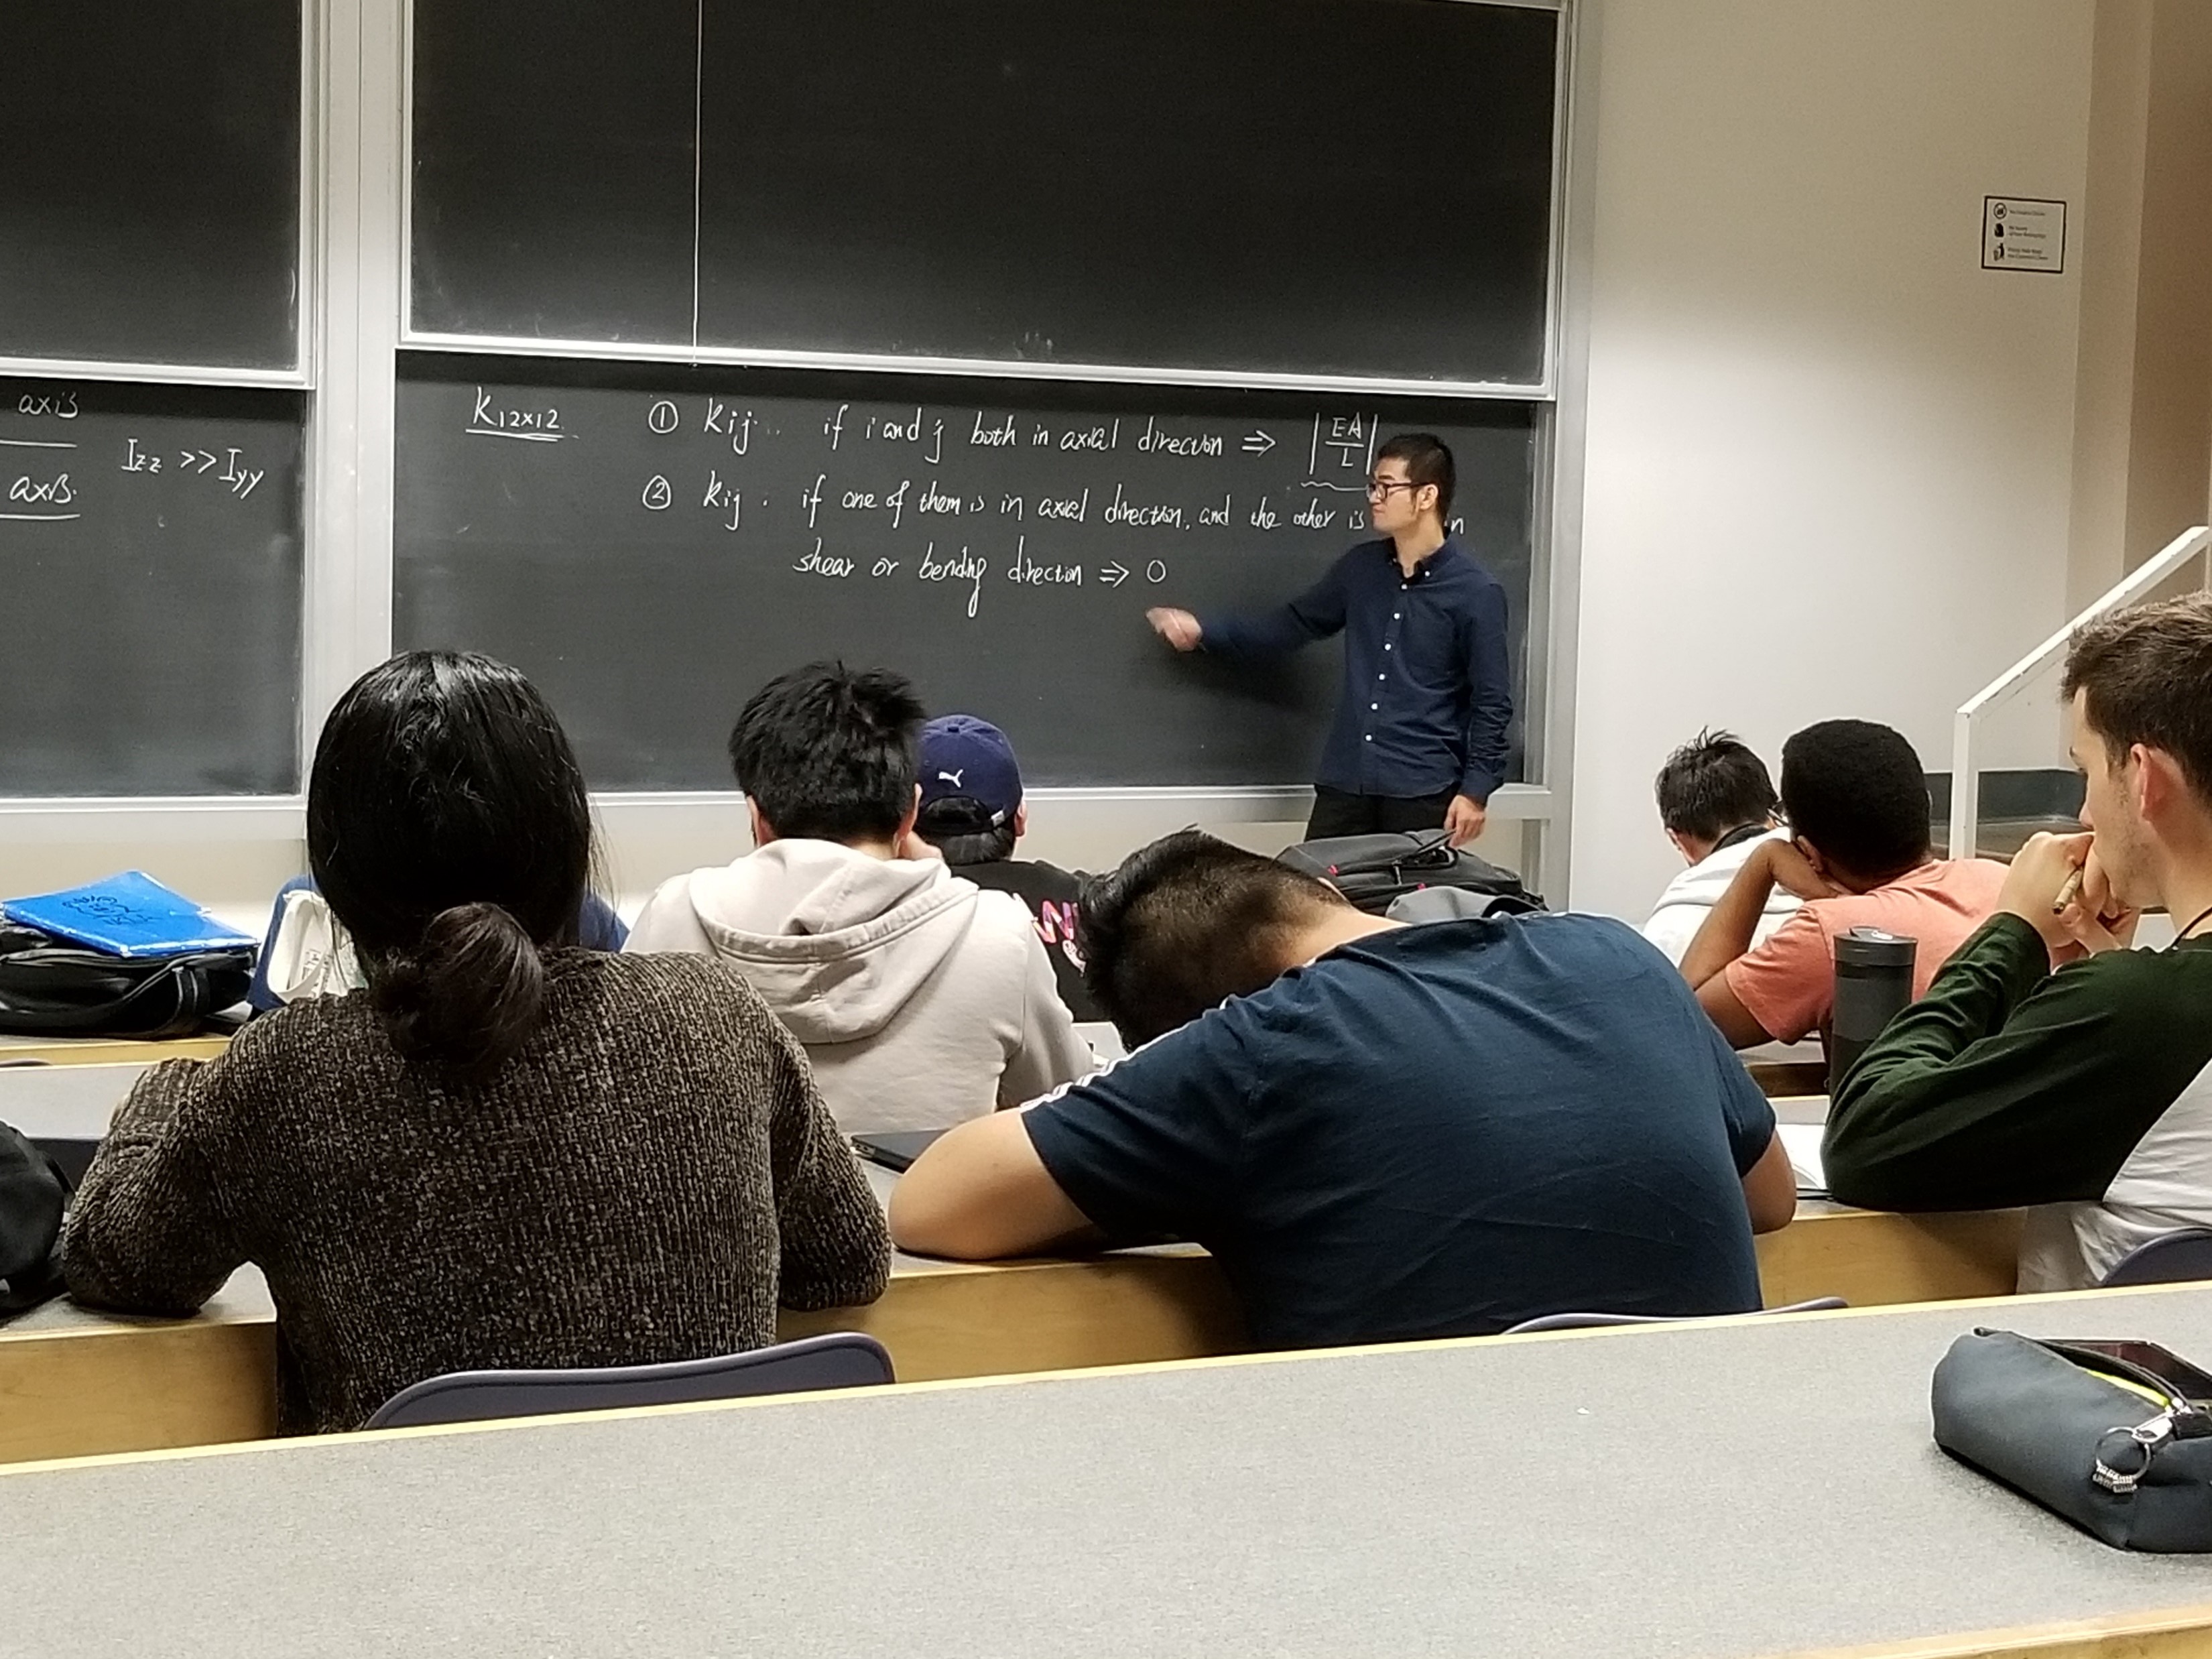 axis
axis.
Izz >> Iyy
K12×12
① Kij.. if i and j both in axial direction ⇒ |EA/L|
② Kij. if one of them is in axial direction, and the other is
shear or bending direction ⇒ 0